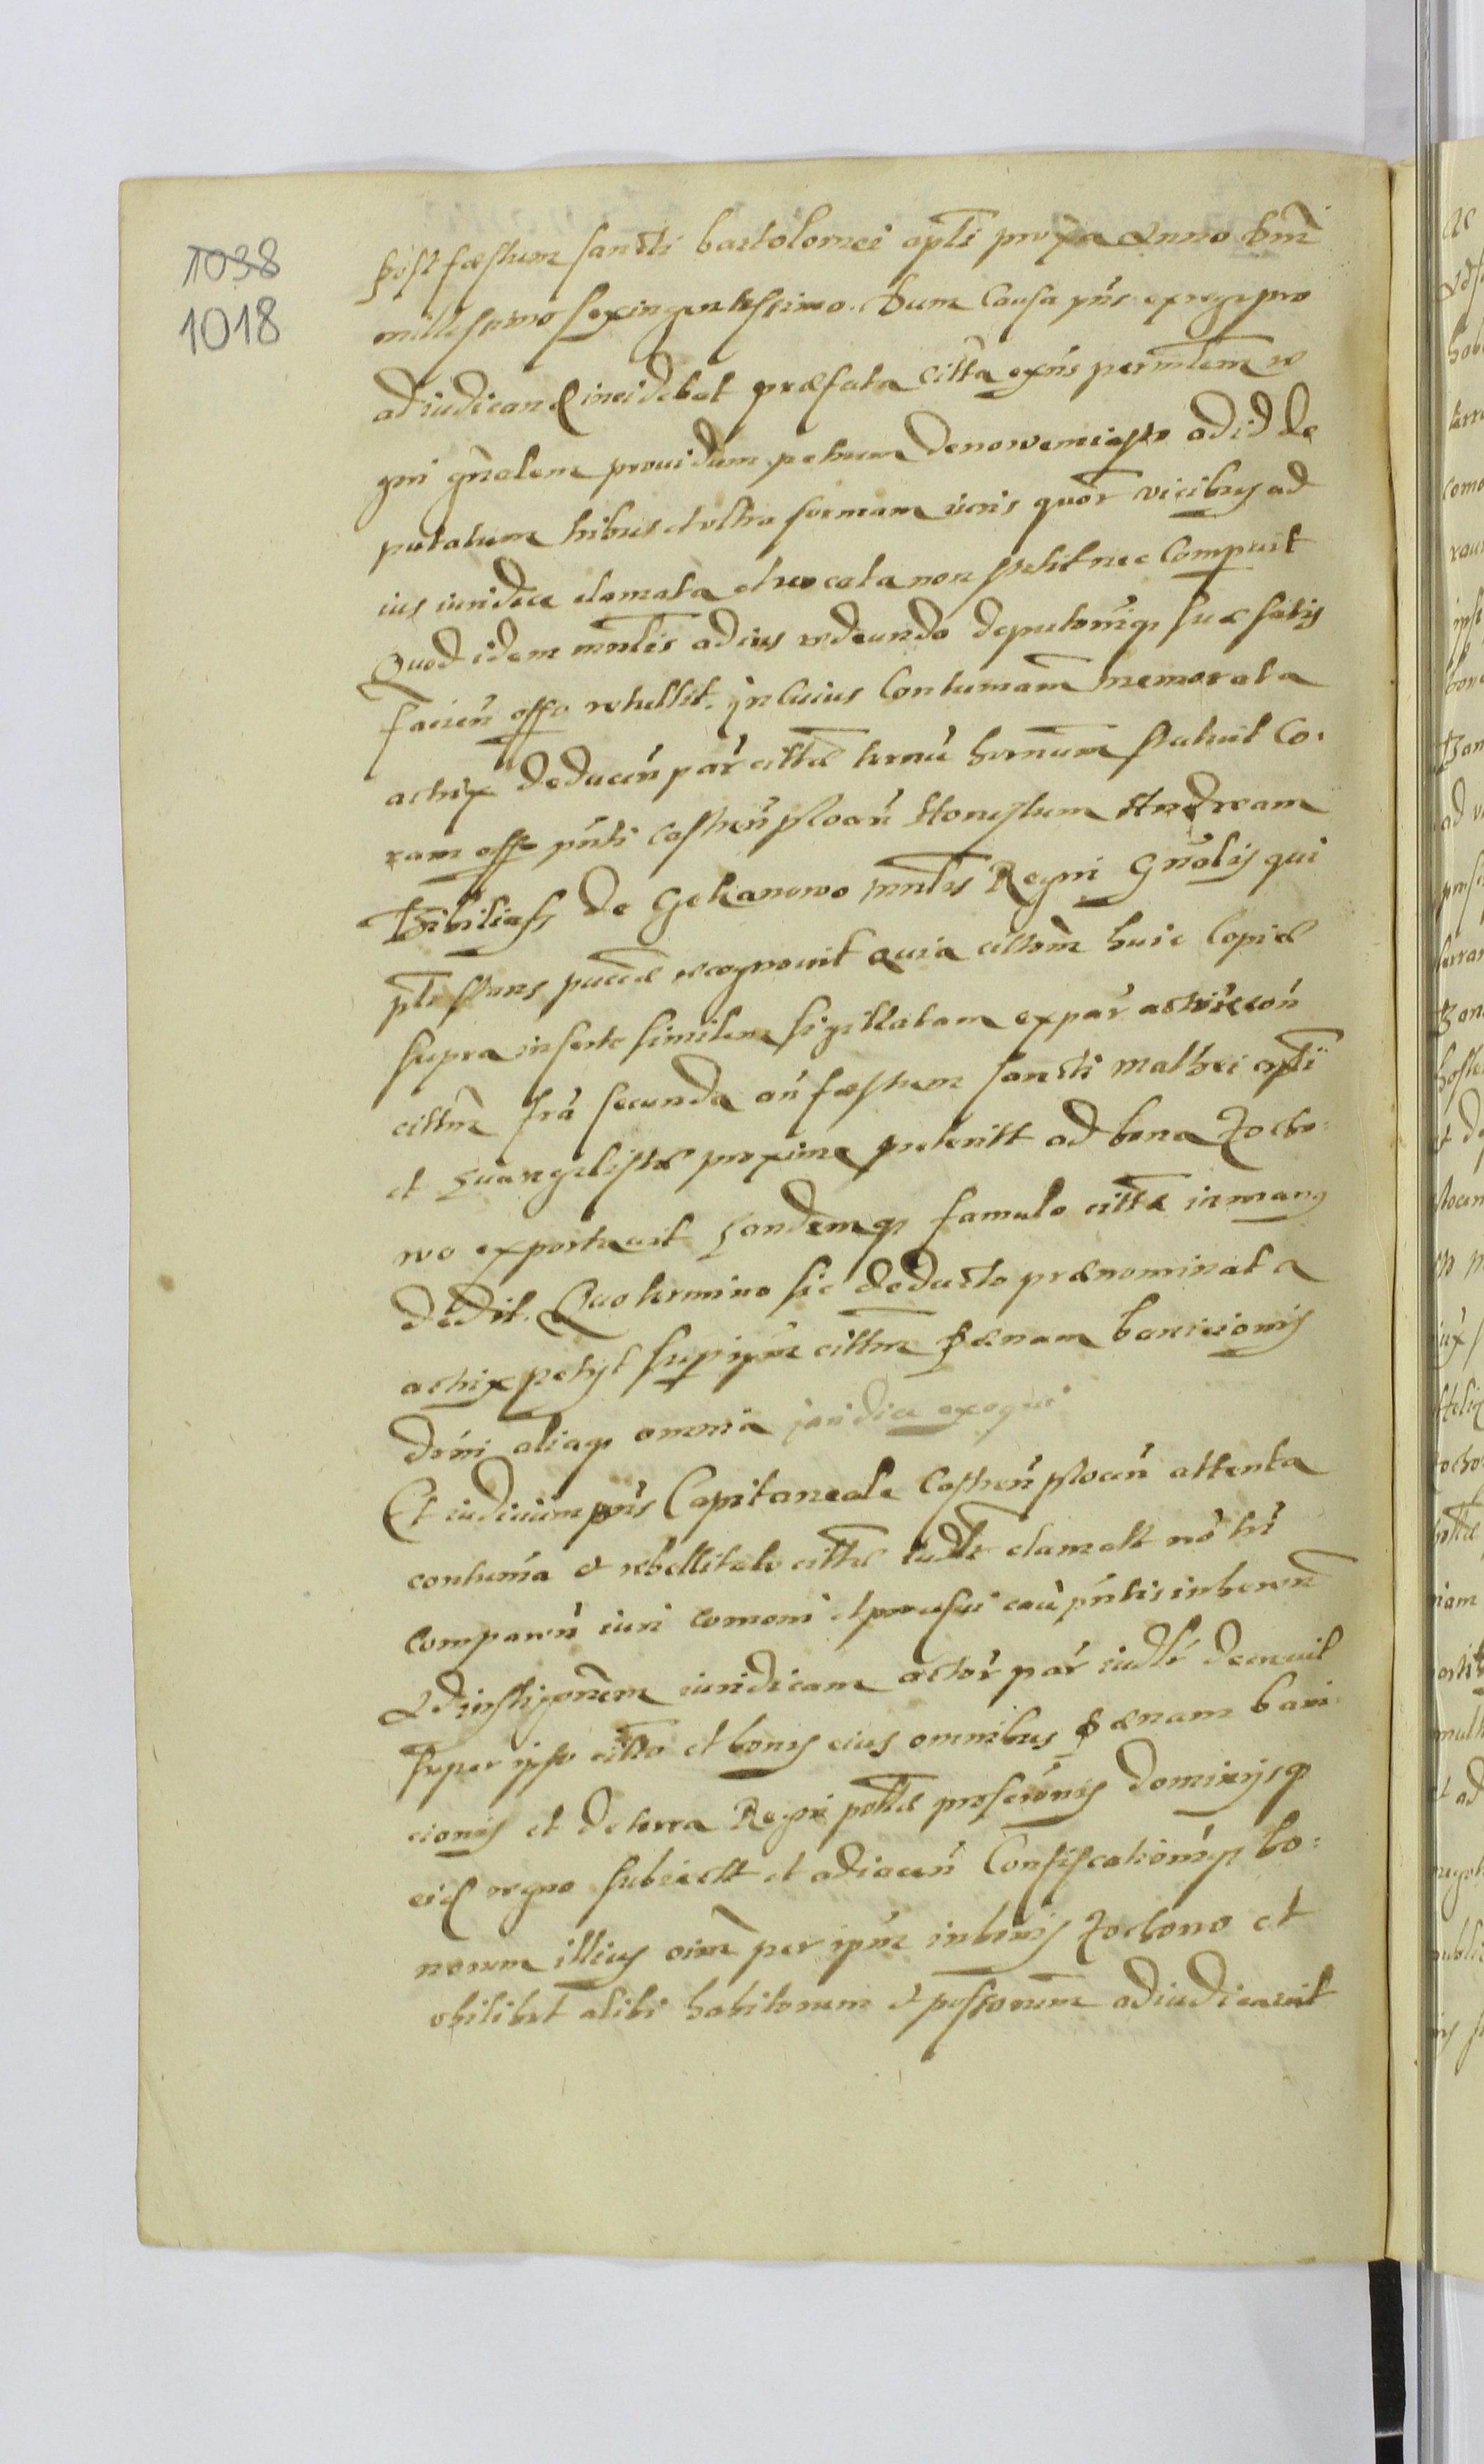 1038
1018
post fæstum sancti bartolomei aptli proxa Anno Dni
millesimo sexingentessimo. Dum Causa pns ex regro
adiudicand incidebat præfata Citta exns per mlem re
gni gnalem providum petrum De ad id de
putatum tribus et ultra formam iuris quor vicibus ad
ius iuridice clamata et vocata non stetit nec Comparuit
Quod idem mnlis ad ius redeundo deputomq suæ satis
facien offo retullit. In Cuius Contumam memorata
actrix deducen par cittæ termn stutuit Co.
ram offo pnti Castren plocen Honestum Andream
de Gekanowo mnlis Regni Gnalis qui
ptr stans pnccæ recognovit quia cittom huic Copiæ
supra insertæ similem sigillatam ex par actricis con
cittm fra secunda an fæstum sancti Mathei aptli
et Evangelistæ proxime preteritt ad bona Zocho=
wo exportavit Eandemq famulo cittæ in manus
dedit. Quo termino sic deducto prænominata
actrix petyt sup ipm cittm pænam banicionis
decerni aliaq omnia iuridice exequi
Et iudicium pns Capitaneale Castren plocen attenta
contumа & rebellitate cittæ iudlr clamatt no tri
comparen iuri comoni et processui cau pntis inheren
Ad instigonem iuridicam actor par iudlr decrevit
super ipso citto et bonis eius omnibus pænam bani
cionis et de terra Regni poltæ proscronis dominijsq
eid regno subiectt et adiacen Confiscationisq bo=
norum illius oim per ipm in bonis Zochowo et
ubilibet alibi habitorum et possorum adiudicavit